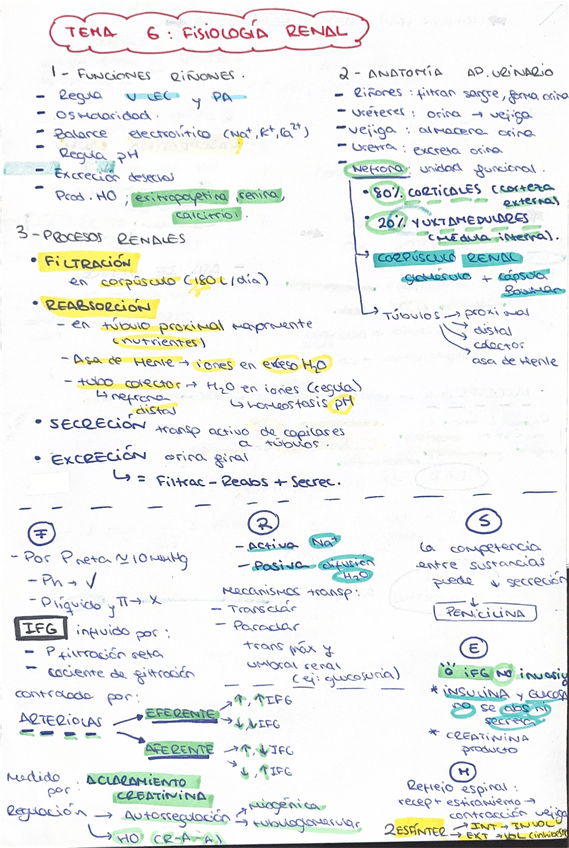 TEMA 6: FISIOLOGÍA RENAL
1- FUNCIONES RIÑONES.
- Regula V LEC y PA
- Osmolaridad.
- Balance electrolítico (Na+, K+, Ca2+)
- Regula pH
- Excreción desechos
- Prod. HO; eritropoyetina, renina,
calcitriol.
2- ANATOMÍA AP. URINARIO
- Riñones: filtran sangre, forma orina
- Uréteres: orina → vejiga
- Vejiga: almacena orina
- Uretra: excreta orina
- Nefrona: unidad funcional.
• 80% CORTICALES (corteza
externa)
• 20% YUXTAMEDULARES
(médula interna).
→ CORPÚSCULO RENAL
glomérulo + cápsula
Bowman
→ Túbulos → proximal
→ distal
→ colector
→ asa de Henle
3- PROCESOS RENALES
• FILTRACIÓN
en corpúsculo (180 L/día)
• REABSORCIÓN
- en túbulo proximal mayormente
(nutrientes)
- Asa de Henle → iones en exceso H2O
- tubo colector → H2O en iones (regula)
↳ nefrona
distal
↳ homeostasis pH
• SECRECIÓN transp activo de capilares
a túbulos.
• EXCRECIÓN orina final
↳ = Filtrac - Reabs + Secrec.
F
- Por P neta ≃ 10 mmHg
- Ph → ✓
- P líquido y π → X
IFG influido por:
- P filtración neta
- cociente de filtración
controlada por:
ARTERIOLAS
EFERENTE → ↑, ↑IFG
→ ↓, ↓IFG
AFERENTE → ↑, ↓ IFG
→ ↓, ↑IFG
Medido
por: ACLARAMIENTO
CREATININA
Regulación → Autorregulación → miogénica
→ tubuloglomerular
↳ HO (R-A-A)
R
- Activa Na+
- Pasiva difusión
H2O
Mecanismos transp:
- Transcelar
- Paracelar
trans máx y
umbral renal
(ej: glucosuria)
S
La competencia
entre sustancias
puede ↓ secreción
↓
PENICILINA
E
IFG NO invasiv
* INSULINA y GLUCOSA
no se abs ni
secreta
* CREATININA
producto
M
Reflejo espinal:
recept estiramiento →
contracción vejiga
2 ESFÍNTER → INT → INVOL
→ EXT → VOL